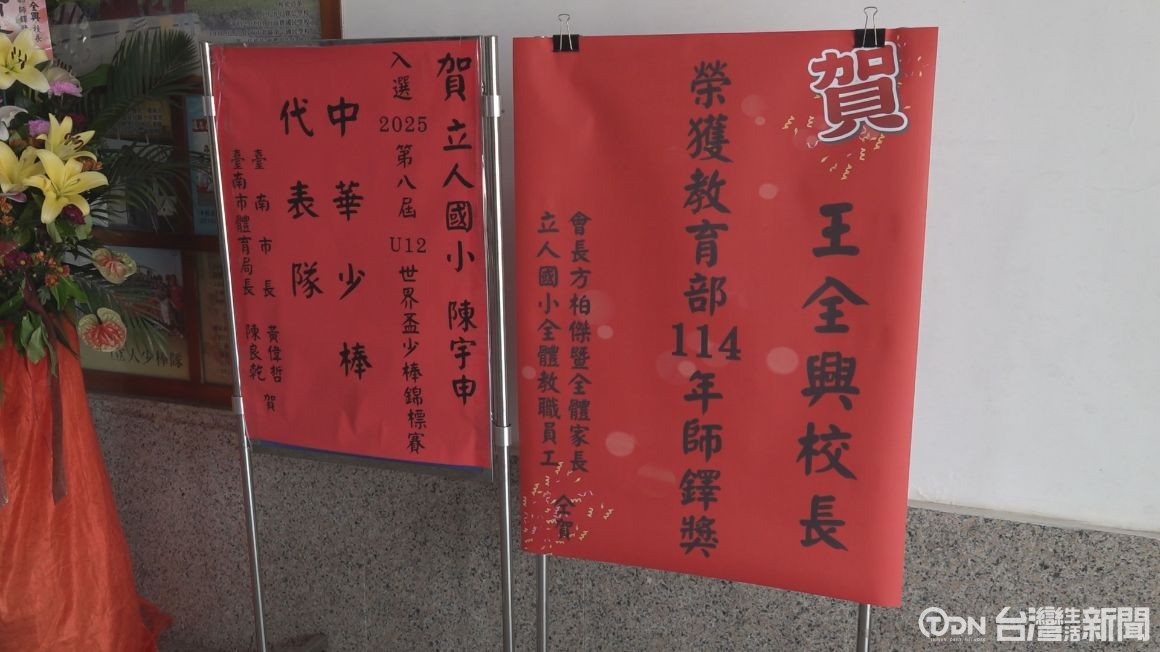 賀
王全興校長
榮獲教育部114年師鐸獎
會長方柏傑暨全體家長
立人國小全體教職員工
仝賀
賀 立人國小 陳宇申
入選 2025 第八屆 U12 世界盃少棒錦標賽
中華少棒
代表隊
臺南市長 黃偉哲
臺南市體育局長 陳良乾 賀
立人少棒隊
TDN 台灣生活新聞